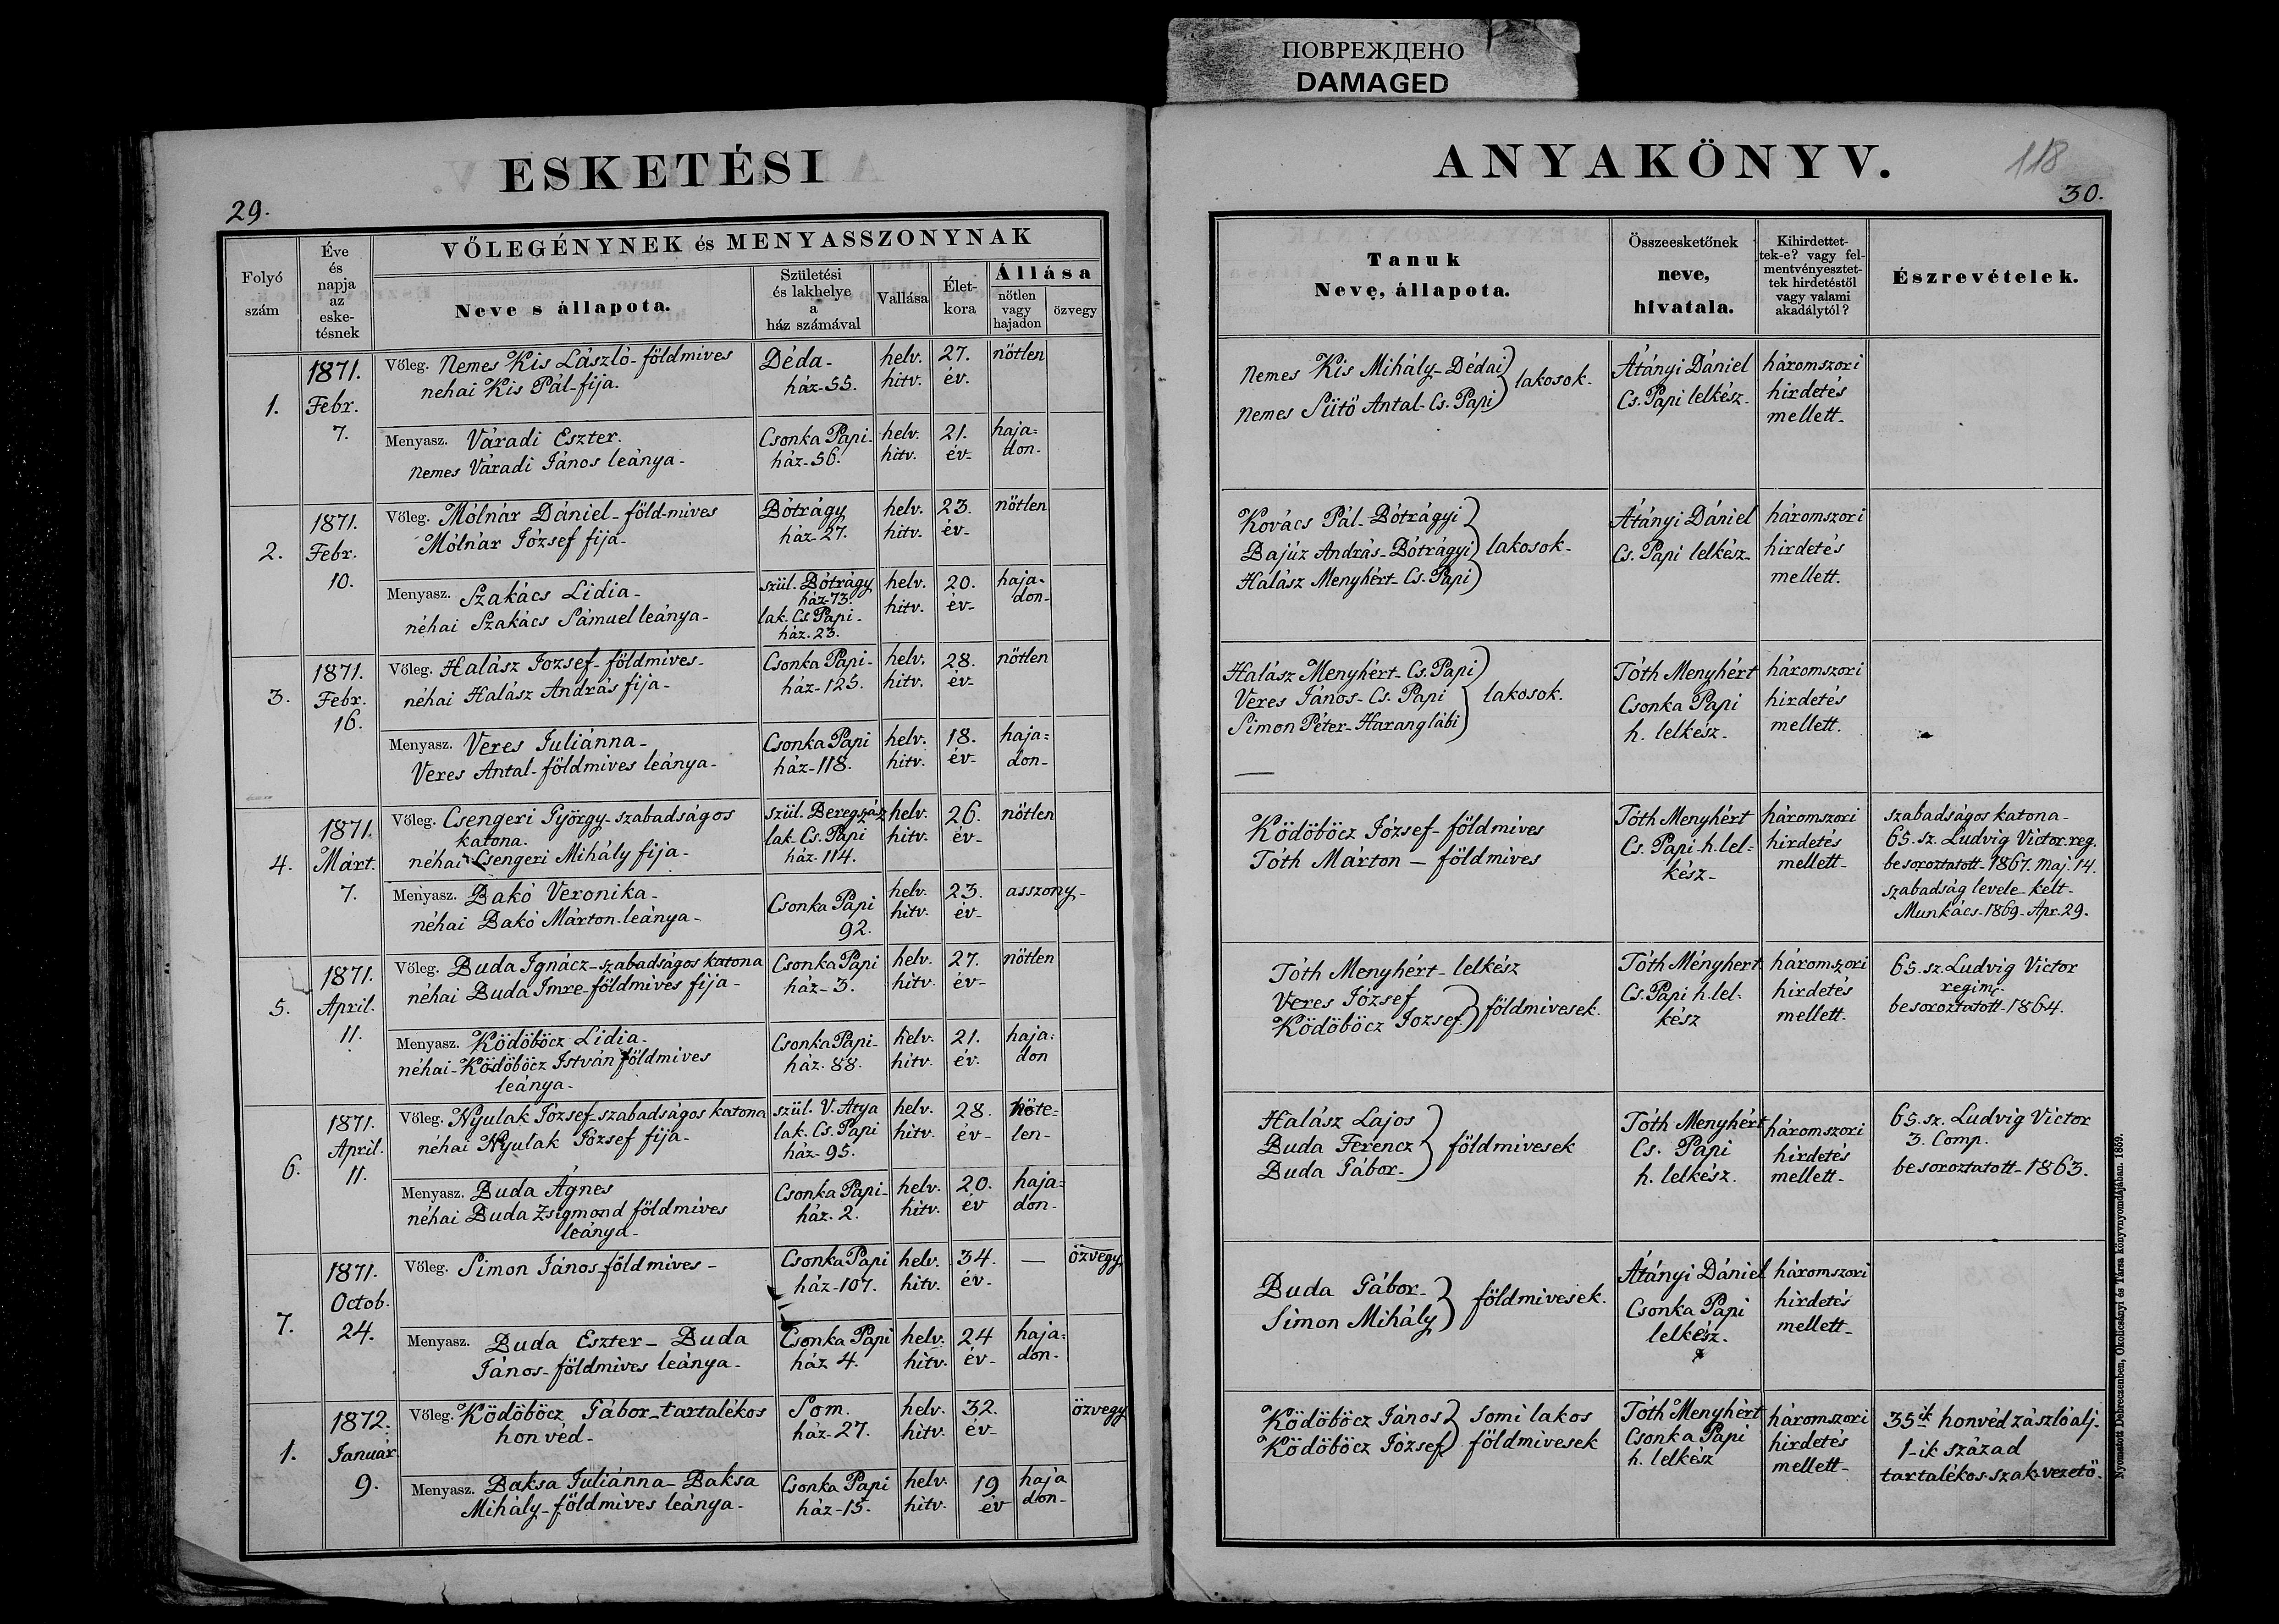 ПОВРЕЖДЕНО
DAMAGED
ESKETÉSI
29.
Folyó
szám
Éve
és
napja
az
eske-
tésnek
VŐLEGÉNYNEK és MENYASSZONYNAK
Neve s állapota.
Születési
és lakhelye
a
ház számával
Vallása
Élet-
kora
Állása
nőtlen
vagy
hajadon
özvegy
1.
1871.
Febr.
7.
Vőleg. Nemes Kis László-földmives
nehai Kis Pál-fija.
Déda-
ház-55.
helv.
hitv.
27.
év.
nőtlen
Menyasz. Váradi Eszter.
Nemes Váradi János leánya-
Csonka Papi-
ház-56.
helv.
hitv.
21.
év-
haja=
don-
2.
1871.
Febr.
10.
Vőleg. Mólnár Dániel-föld-mives
Mólnár József fija-
Bótrágy
ház-27.
helv.
hitv.
23.
év-
nőtlen
Menyasz. Szakács Lidia-
néhai Szakács Sámuel leánya-
szül. Bótrágy
ház-73.
lak. Cs. Papi-
ház. 23.
helv.
hitv.
20.
év-
haja-
don-
3.
1871.
Febr.
16.
Vőleg. Halász Jozsef-földmives-
néhai Halász András fija-
Csonka Papi-
ház-125.
helv.
hitv.
28.
év-
nőtlen
Menyasz. Veres Juliánna-
Veres Antal-földmives leánya-
Csonka Papi
ház-118.
helv.
hitv.
18.
év-
haja=
don-
4.
1871.
Márt.
7.
Vőleg. Csengeri György-szabadságos
katona.
néhai Csengeri Mihály fija-
szül. Beregszász
lak. Cs. Papi
ház-114.
helv.
hitv.
26.
év-
nőtlen
Menyasz. Bakó Veronika-
néhai Bakó Márton-leánya-
Csonka Papi
92.
helv.
hitv.
23.
év-
asszony-
5.
1871.
April.
11.
Vőleg. Buda Ignácz-szabadságos katona
néhai Buda Imre-földmives fija-
Csonka Papi
ház-3.
helv.
hitv.
27.
év-
nőtlen
Menyasz. Ködöböcz Lidia-
néhai-Ködöböcz István földmives
leánya-
Csonka Papi-
ház. 88.
helv.
hitv.
21.
év.
haja=
don
6.
1871.
April.
11.
Vőleg. Nyulak József-szabadságos katona
néhai Nyulak József fija-
szül. V. Atya
lak. Cs. Papi
ház-95.
helv.
hitv.
28.
év-
nőte=
len-
Menyasz. Buda Ágnes
néhai Buda Zsigmond földmives
leánya-
Csonka Papi-
ház. 2.
helv.
hitv.
20.
év
haja=
don-
7.
1871.
Octob.
24.
Vőleg. Simon János-földmives-
Csonka Papi
ház-107.
helv.
hitv.
34.
év-
—
özvegy
Menyasz. Buda Eszter-Buda
János-földmives leánya-
Csonka Papi
ház 4.
helv.
hitv.
24
év-
haja=
don-
1.
1872.
Január.
9.
Vőleg. Ködöböcz Gábor-tartalékos
honvéd-
Som.
ház-27.
helv.
hitv.
32.
év-
özvegy
Menyasz. Baksa Juliánna-Baksa
Mihály-földmives leánya-
Csonka Papi
ház-15.
helv.
hitv.
19
év
haja
don-
ANYAKÖNYV.
118
30.
Tanuk
Neve, állapota.
Összeesketőnek
neve,
hivatala.
Kihirdettet-
tek-e? vagy fel-
mentvényesztet-
tek hirdetéstöl
vagy valami
akadálytól?
Észrevételek.
Nemes Kis Mihály-Dédai
Nemes Sütő Antal-Cs. Papi
lakosok-
Átányi Dániel
Cs. Papi lelkész-
háromszori
hirdetés
mellett-
Kovács Pál-Bótrágyi
Bajúz András-Bótrágyi
Halász Menyhért-Cs. Papi
lakosok-
Átányi Dániel
Cs. Papi lelkész-
háromszori
hirdetés
mellett.
Halász Menyhért-Cs. Papi
Veres János-Cs. Papi
Simon Péter-Haranglábi
lakosok.
Tóth Menyhért
Csonka Papi
h. lelkész-
háromszori
hirdetés
mellett.
Ködöböcz József-földmives
Tóth Márton - földmives
Tóth Menyhért
Cs. Papi-h. lel=
kész-
háromszori
hirdetés
mellett-
szabadságos katona-
65. sz. Ludvig Victor reg.
besoroztatott-1867. Maj. 14.
szabadság levele-kelt-
Munkács-1869-Apr. 29.
Tóth Menyhért-lelkész
Veres József
Ködöböcz Jozsef
földmivesek.
Tóth Ményhert
Cs. Papi h. lel-
kész
háromszori
hirdetés
mellett-
65. sz. Ludvig Victor
regim.
besoroztatott-1864.
Halász Lajos
Buda Ferencz
Buda Gábor-
földmivesek
Tóth Menyhért
Cs. Papi
h. lelkész.
háromszori
hirdetés
mellett-
65. sz. Ludvig Victor
3. Comp.
besoroztatott-1863.
Buda Gábor-
Simon Mihály
földmivesek.
Átányi Dániel
Csonka Papi
lelkész.
háromszori
hirdetés
mellett-
Ködöböcz János
Ködöböcz József
Somi lakos
földmivesek
Tóth Menyhért
Csonka Papi
h. lelkész
háromszori
hirdetés
mellett-
35ik honvéd zászlóalj.
1-ik század
tartalékos-szak-vezető.
Nyomatott Debreczenben, Okolicsányi és Társa könyvnyomdájában. 1859.